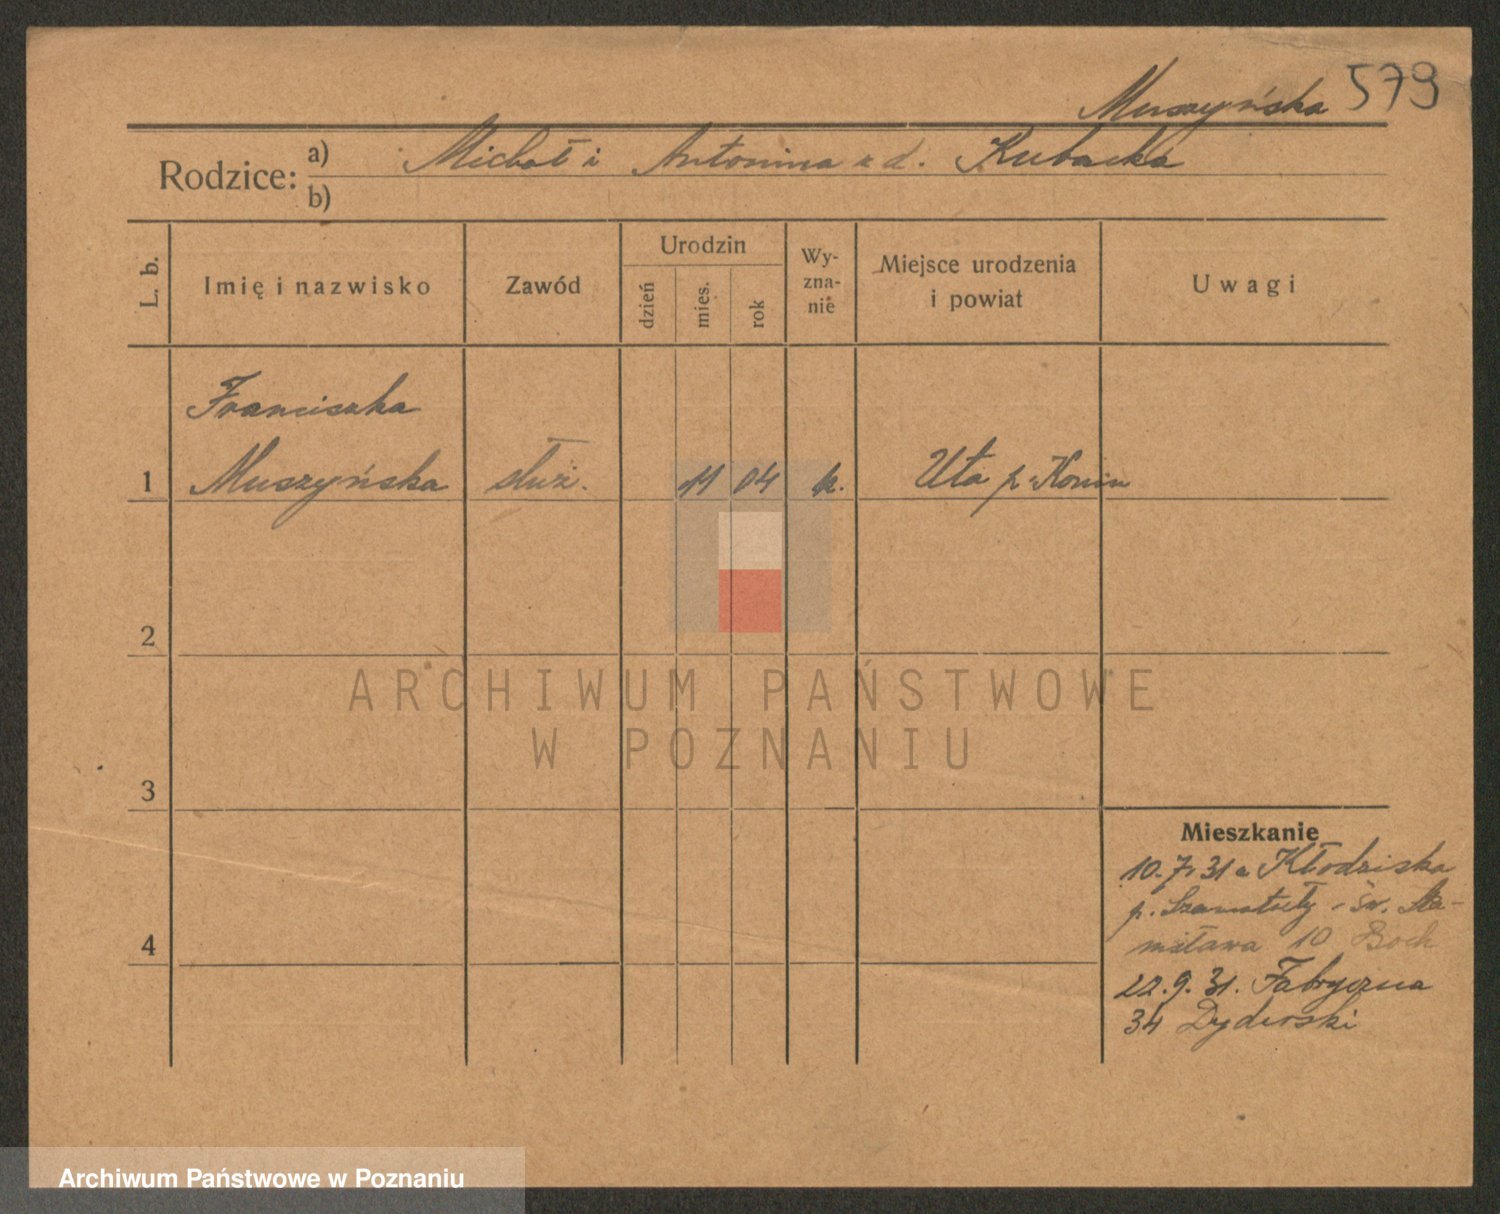 Muszyńska 579
Rodzice: a) Michał i Antonina z d. Kubacka
b)
L. b.
Imię i nazwisko
Zawód
Urodzin
dzień
mies.
rok
Wy-
zna-
nie
Miejsce urodzenia
i powiat
Uwagi
Franciszka
1 Muszyńska służ. 11 04 k. Uta p. Konin
2
3
4
Mieszkanie
10.7.31 a Kłodziska
p. Szamotuły - św. Sta-
nisława 10 Boch
22.9.31. Fabryczna
34 Dyderski
ARCHIWUM PAŃSTWOWE
W POZNANIU
Archiwum Państwowe w Poznaniu